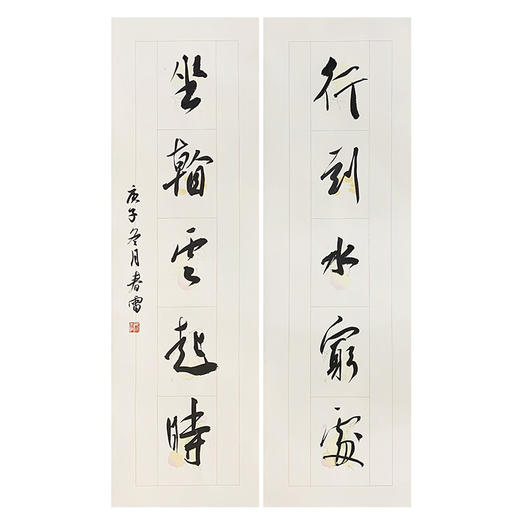 行到水窮處
坐看雲起時
庚子冬月春雷